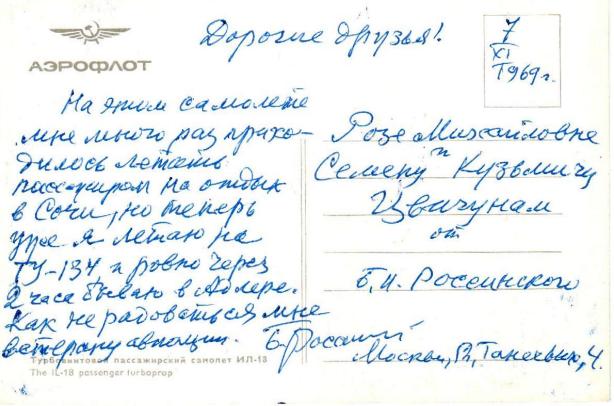 АЭРОФЛОТ
Дорогие друзья!
7
XI
1969 г.
На этом самолете
мне много раз прихо-
дилось летать
пассажиром на отдых
в Сочи, но теперь
уже я летаю на
ТУ-134, и ровно через
2 часа бываю в Адлере.
Как не радоваться мне
ветерану авиации.
Б. Россинский
Розе Михайловне
и
Семену Кузьмичу
Цвичунам
от
Б. И. Россинского
Москва,
Турбовинтовой пассажирский самолет ИЛ-18
The IL-18 passenger turboprop